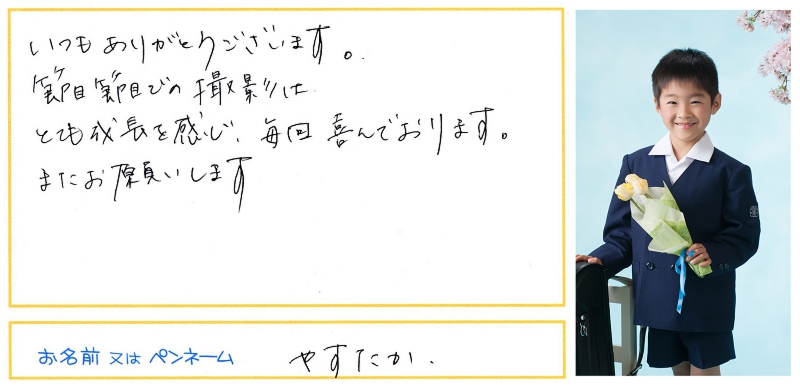 いつもありがとうございます。
節目節目での撮影は
とても成長を感じ、毎回喜んでおります。
またお願いします
お名前 又は ペンネーム
やすたか.